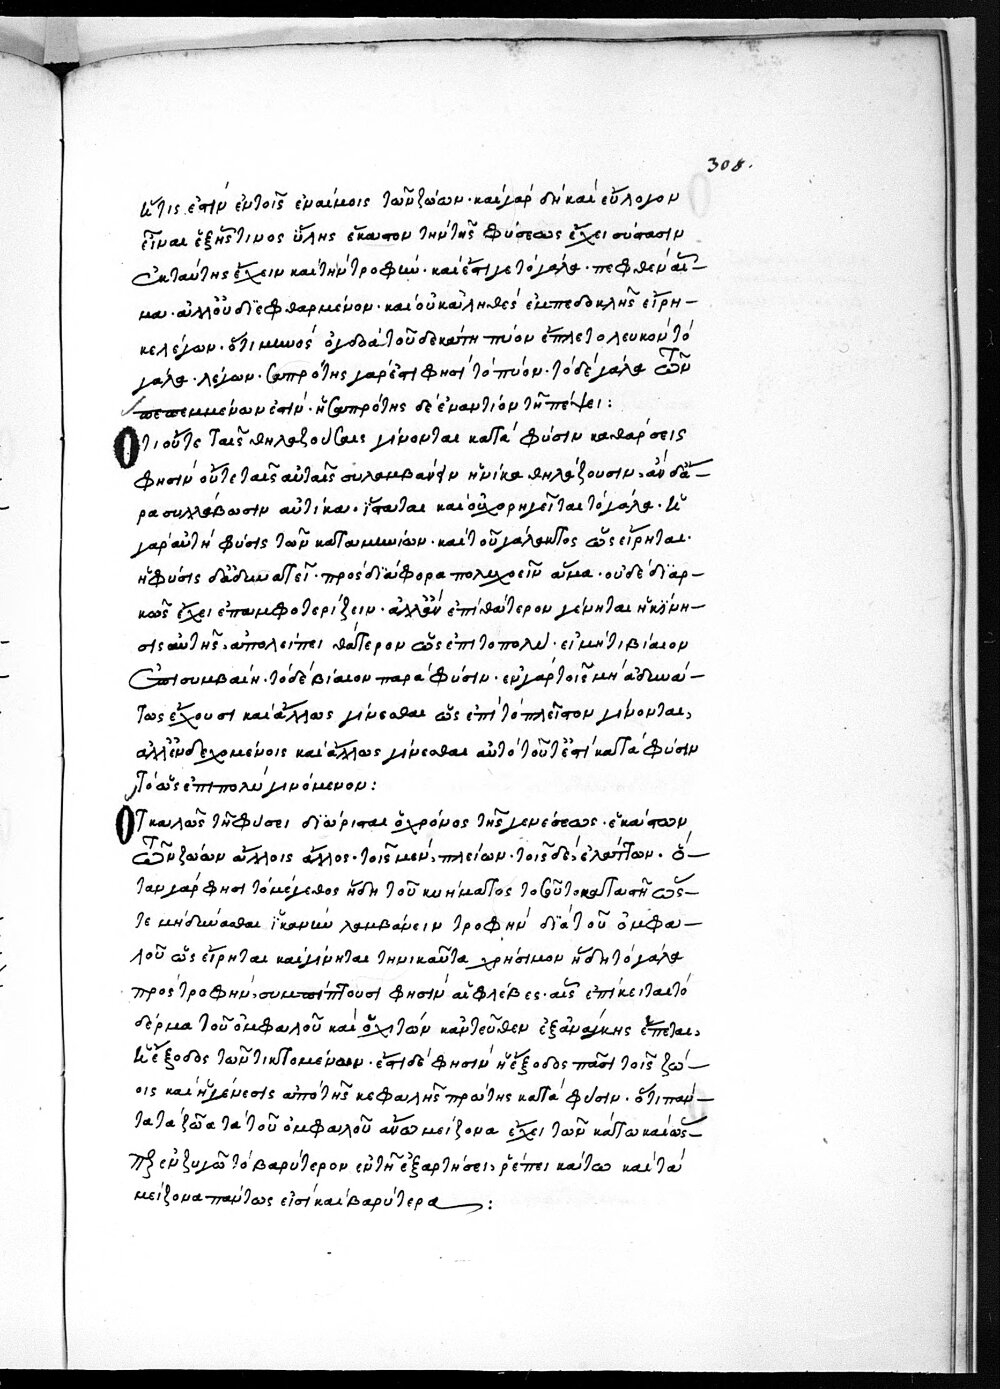 308.
ἥτις ἐστὶν ἐν τοῖς ἐναίμοις τῶν ζώων· καὶ γὰρ δὴ καὶ εὔλογον
εἶναι ἐξ ἧς τινος ὕλης ἕκαστον τὴν τῆς φύσεως ἔχει σύστασιν
ἐκ ταύτης ἔχειν καὶ τὴν τροφήν· καὶ ἔστι γε τὸ γάλα· πεφθὲν αἷ-
μα· ἀλλ' οὐ διεφθαρμένον· καὶ οὐκ ἀληθὲς ἐμπεδοκλῆς εἴρη-
κε λέγων· ὅτι μηνὸς ὀγδοάτου δεκάτῃ πύον ἔπλετο λευκὸν τὸ
γάλα· λέγων· σαπρότης γάρ ἐστι φησὶ τὸ πύον· τὸ δὲ γάλα τῶν
πεπεμμένων ἐστίν· ἡ σαπρότης δὲ ἐναντίον τῇ πέψει:
Ὅτι οὔτε ταῖς θηλαζούσαις γίνονται κατὰ φύσιν καθάρσεις
φησὶν οὔτε ταῖς αὐταῖς συλλαμβάνειν ἡνίκα θηλάζουσιν, ἂν δὲ ἄ-
ρα συλλάβωσιν αὐτίκα· ἵσταται καὶ οὐ χορηγεῖται τὸ γάλα· ἡ
γὰρ αὐτὴ φύσις τῶν καταμηνίων· καὶ τοῦ γάλακτος ὡς εἴρηται·
ἡ φύσις δὲ ἀδυνατεῖ· πρὸς διάφορα πολυχοεῖν ἅμα· οὐδὲ διαρ-
κῶς ἔχει ἐπαμφοτερίζειν· ἀλλ' ἂν ἐπὶ θάτερον γένηται ἡ κίνη-
σις αὐτῆς, ἀπολείπει θάτερον ὡς ἐπιτοπολύ· εἰ μή τι βίαιον
συμβαίη· τὸ δὲ βίαιον παρὰ φύσιν· ἐν γὰρ τοῖς μὴ ἀδυνά-
τως ἔχουσι καὶ ἄλλως γίνεσθαι ὡς ἐπὶ τὸ πλεῖστον γίνονται,
ἀλλ' ἐνδεχομένοις καὶ ἄλλως γίνεσθαι αὐτὸ τοῦτ' ἐστὶ κατὰ φύσιν
τὸ ὡς ἐπιπολὺ γινόμενον:
Ὅτι καλῶς τῇ φύσει διώρισται ὁ χρόνος τῆς γενέσεως· ἑκάστων
τῶν ζώων ἄλλοις ἄλλος· τοῖς μὲν, πλείων· τοῖς δὲ, ἐλάττων· ὅ-
ταν γάρ φησι τὸ μέγεθος ἤδη τοῦ κυήματος τοσοῦτο καταστῇ ὥς-
τε μὴ δύνασθαι ἱκανὴν λαμβάνειν τροφὴν διὰ τοῦ ὀμφα-
λοῦ ὡς εἴρηται καὶ γίνηται τηνικαῦτα χρήσιμον ἤδη τὸ γάλα
πρὸς τροφὴν, συμπίπτουσι φησὶν αἱ φλέβες· αἷς ἐπίκειται τὸ
δέρμα τοῦ ὀμφαλοῦ καὶ ὁ χιτὼν κἀντεῦθεν ἐξ ἀνάγκης ἕπεται,
ἡ ἔξοδος τῶν τικτομένων· ἔστι δέ φησιν ἡ ἔξοδος πᾶσι τοῖς ζώ-
οις καὶ ἡ γένεσις ἀπὸ τῆς κεφαλῆς πρώτης κατὰ φύσιν· ὅτι πάν-
τα τὰ ζῶα τὰ τοῦ ὀμφαλοῦ ἄνω μείζονα ἔχει τῶν κάτω καὶ ὥς-
περ ἐν ζυγῷ τὸ βαρύτερον ἐν τῇ ἐξαρτήσει, ῥέπει κάτω καὶ τὰ
μείζονα πάντως εἰσὶ καὶ βαρύτερα: